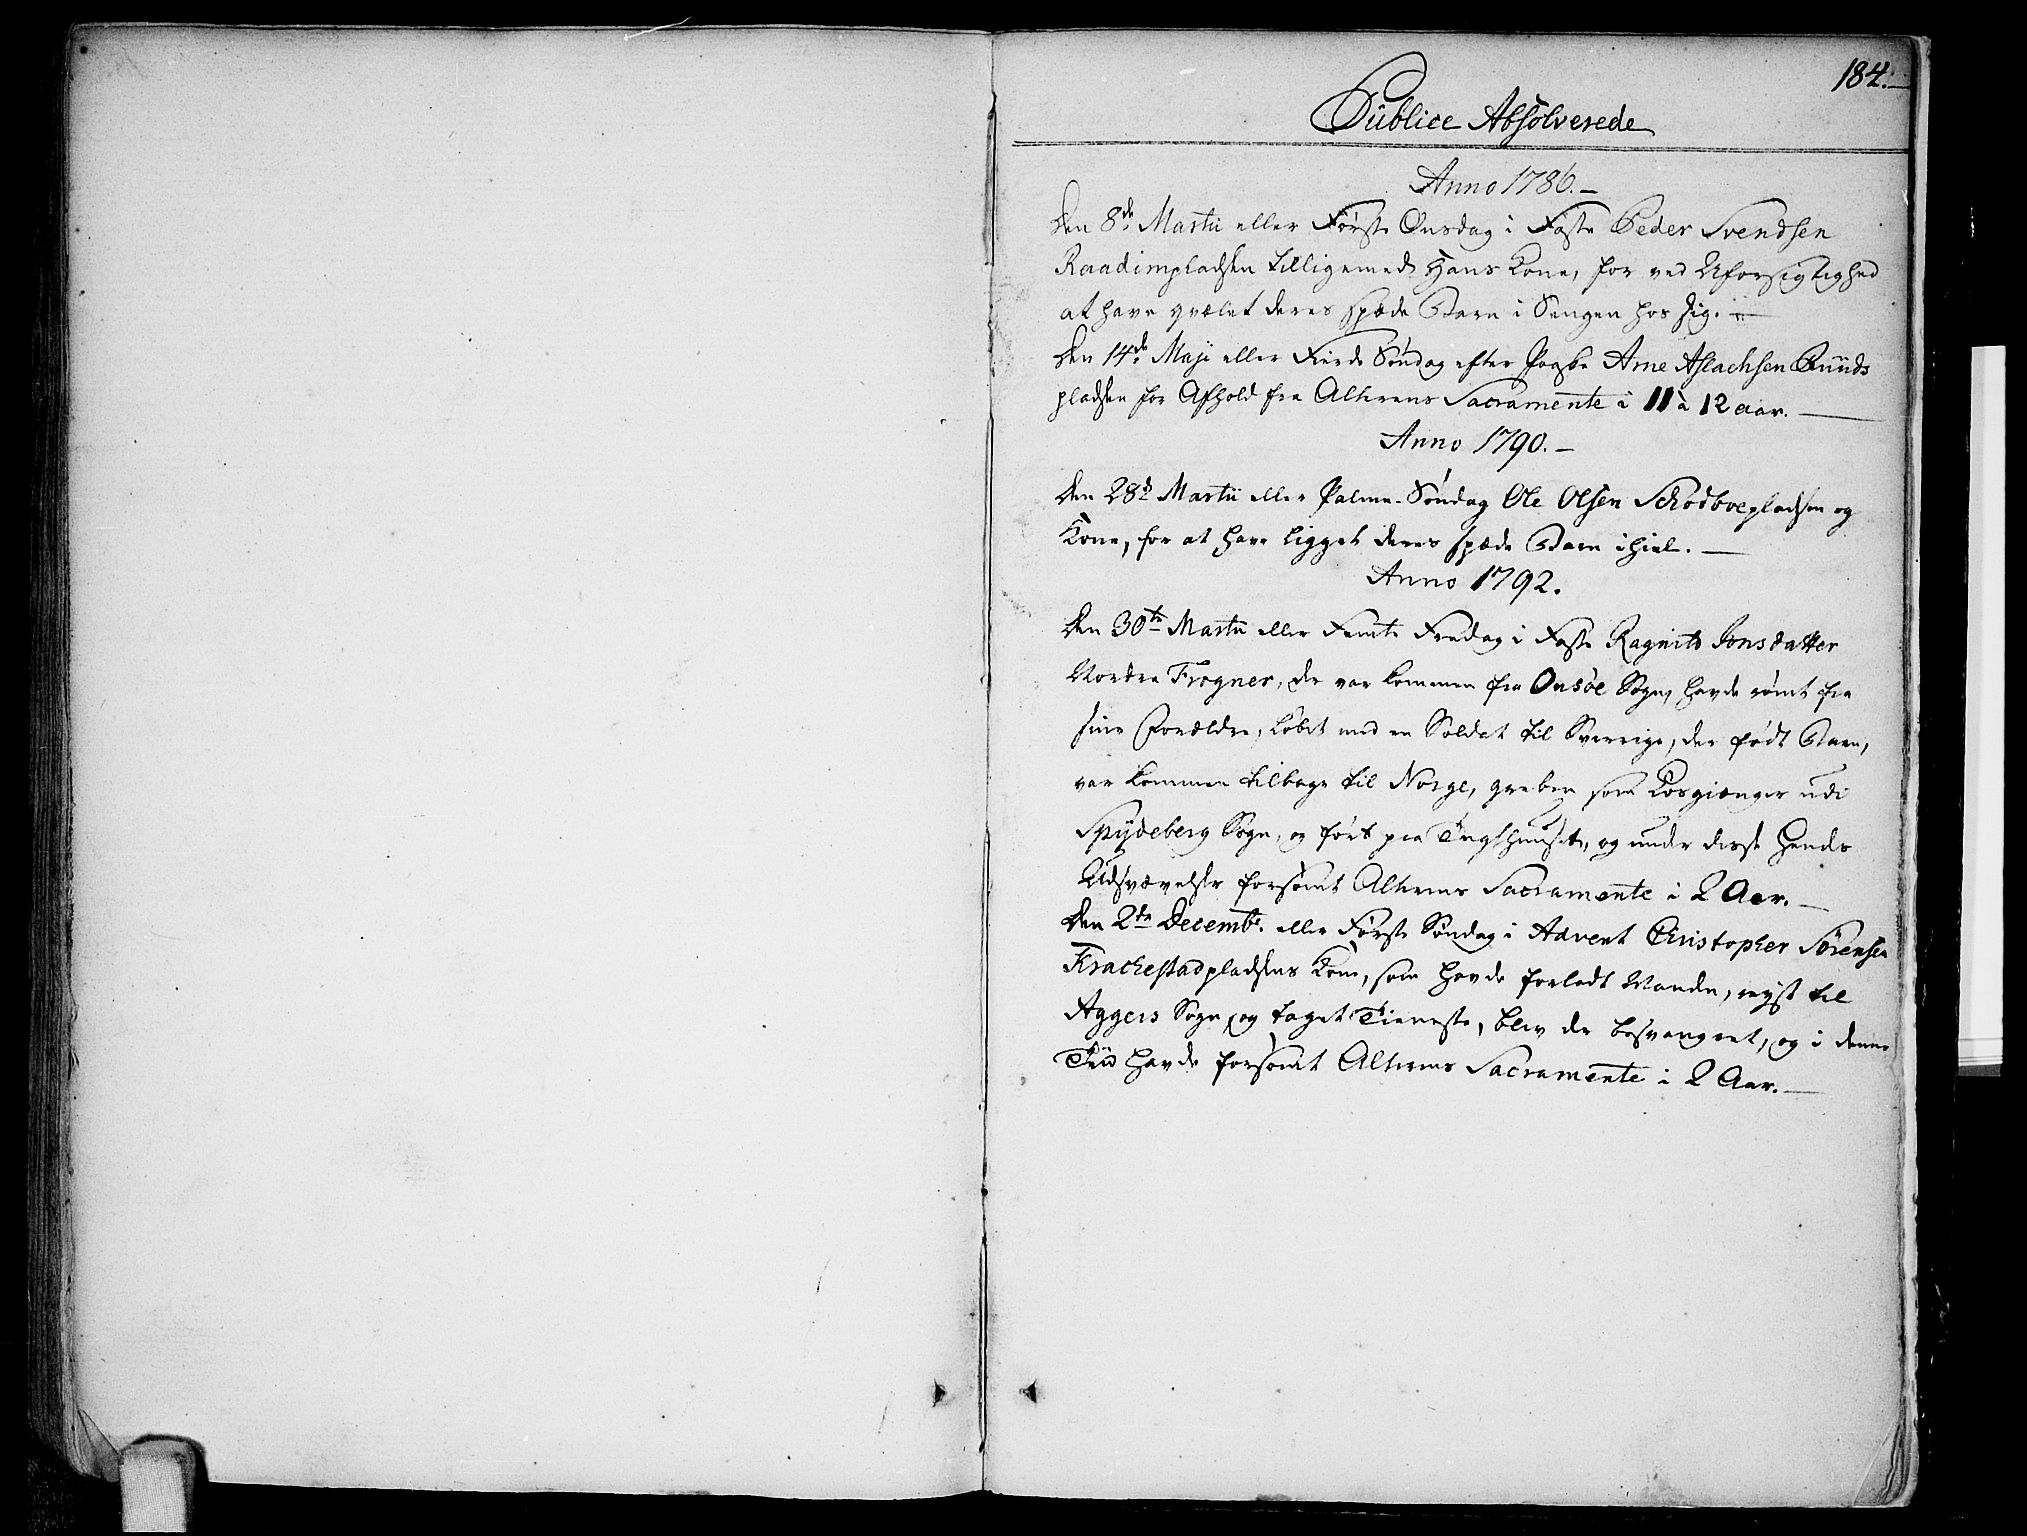 184.
Publice Absolverede
Anno 1786.
Den 8de Martii eller Første Onsdag i Faste Peder Svendsen
Raadimpladsen tilligemed Hans Kone, for ved Uforsigtighed
at have qvælet deres spæde Barn i Sengen hos sig.
Den 14de Maji eller Fierde Søndag efter Paaske Arne Aslachsen Ruuds
pladsen for Afhold fra Alterens Sacramente i 11 à 12 aar.
Anno 1790.
Den 28de Martii eller Palme-Søndag Ole Olsen Schodboepladsen og
Kone, for at have ligget deres spæde Barn ihiel.
Anno 1792.
Den 30te Martii eller Femte Fredag i Faste Ragnild Jonsdatter
Nordre Frogner, der var kommen fra Onsøe Sogn, havde rømt fra
sine Forældre, løbet med en Soldat til Sverrige, der født Barn,
var kommen tilbage til Norge, greben som Løsgiænger udi
Spydeberg Sogn, og ført paa Tugthuuset, og under disse hendes
Udsvævelser forsømt Alterens Sacramente i 2 Aar.
Den 2den Decembr. eller Første Søndag i Advent Christopher Sørensen
Krachestadpladsens Kone, som havde forladt Manden, reyst til
Aggers Sogn, og taget Tieneste, blev der besvangret, og i denne
Tiid havde forsømt Alterens Sacramente i 2 Aar.